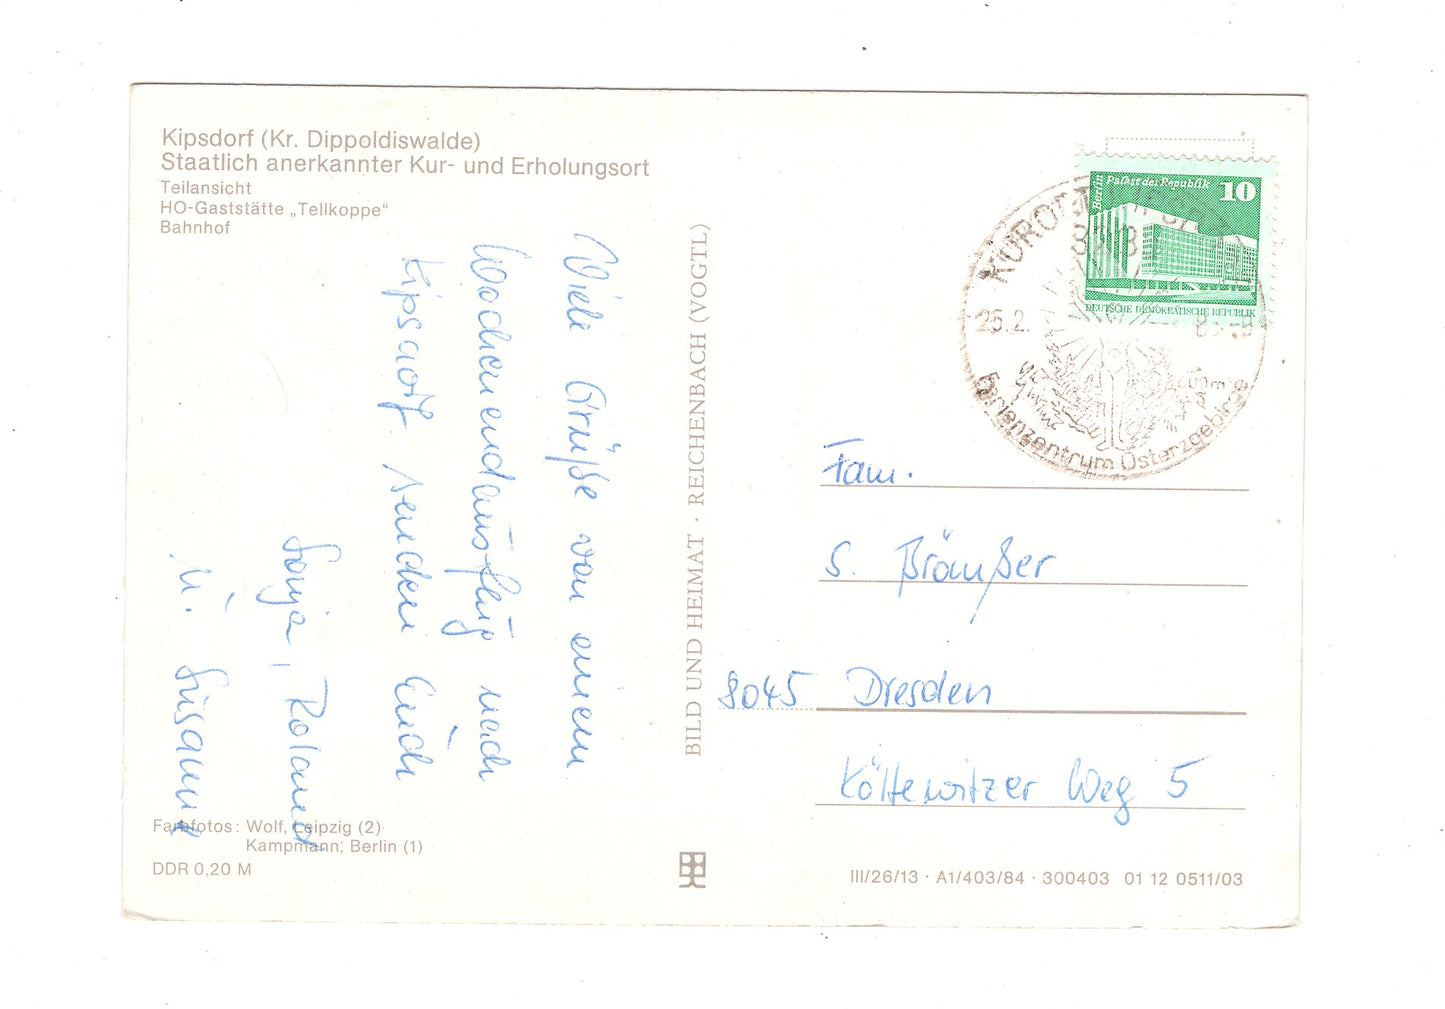 Kipsdorf (Kr. Dippoldiswalde)
Staatlich anerkannter Kur- und Erholungsort
Teilansicht
HO-Gaststätte „Tellkoppe“
Bahnhof
Viele Grüße von einem
Wochenendausflug nach
Kipsdorf senden Euch
Sonja, Roland
u. Susann
Farbfotos: Wolf, Leipzig (2)
Kampmann, Berlin (1)
DDR 0,20 M
BILD UND HEIMAT · REICHENBACH (VOGTL)
Berlin Palast der Republik 10
DEUTSCHE DEMOKRATISCHE REPUBLIK
KURORT
25.2.
600m
Ferienzentrum Osterzgebirge
Fam.
S.
8045 Dresden
Köttewitzer Weg 5
III/26/13 · A1/403/84 · 300403 01 12 0511/03